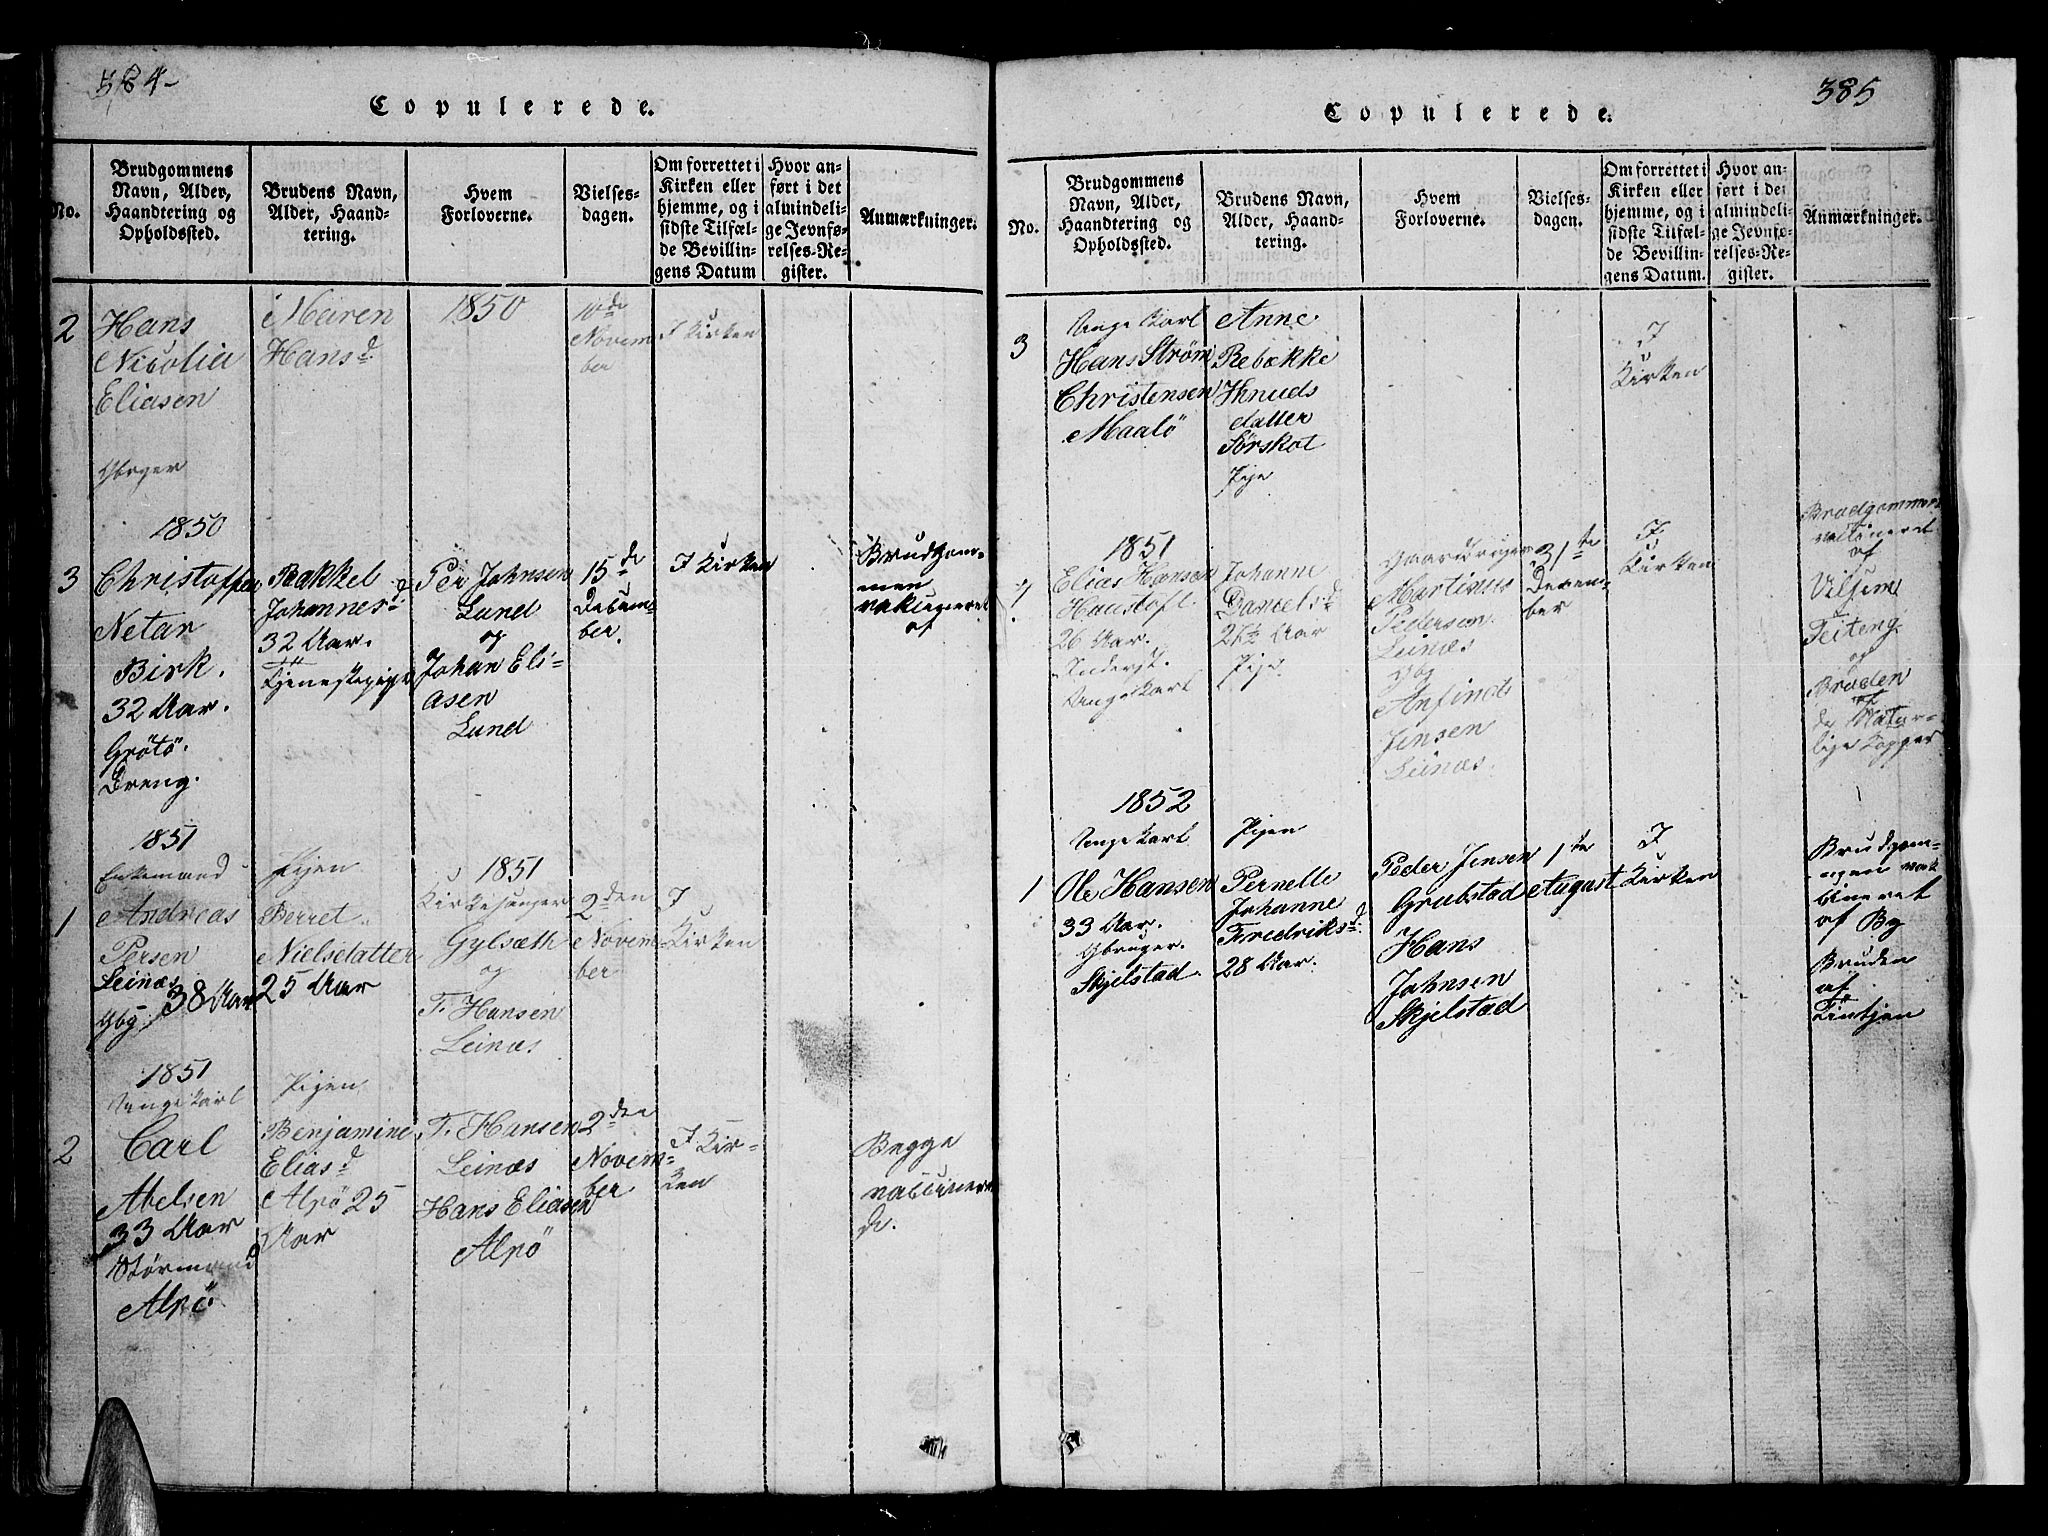 384
Copulerede.
No.
Brudgommens
Navn, Alder,
Haandtering og
Opholdssted.
Brudens Navn,
Alder, Haand-
tering.
Hvem
Forloverne.
Vielses-
dagen.
Om forrettet i
Kirken eller
hjemme, og i
sidste Tilfæl-
de Bevillin-
gens Datum
Hvor an-
ført i det
almindeli-
ge Jevnfø-
relses-Re-
gister.
Anmærkninger.
2
Hans
Nicolia
Eliasen
Gbrger
Maren
Hansd.
1850
10de
Novem
ber
I Kirken
1850
3
Christoffer
Netar
Birk.
32 Aar.
Grötö.
Dreng.
Rakkel
Johannesd.
32 Aar.
Tjenestepige
Per Johnsen
Lund
og
Johan Eli-
asen
Lund
15de
Decem-
ber.
I Kirken
Brudgom-
men
vakcineret
af
1851
Enkemand
1
Andreas
Persen
Leinæs
Gbg. 38 Aar
Pigen
Berret
Nielsdatter
25 Aar
1851
Kirkesanger
Gylsæth
og
T. Hansen
Leinæs
2den
Novem-
ber
I
Kirken
1851
Ungekarl
2
Carl
Abelsen
33 Aar
Størmand
Alpö
Pigen
Benjamine
Eliasd.
Alpö 25
Aar
T. Hansen
Leinæs
Hans Eliasen
Alpö
2den
Novem-
ber
I Kir-
ken
Begge
vaccinere
de.
385
Copulerede.
No.
Brudgommens
Navn, Alder,
Haandtering og
Opholdssted.
Brudens Navn,
Alder, Haand-
tering.
Hvem
Forloverne.
Vielses-
dagen.
Om forrettet i
Kirken eller
hjemme, og i
sidste Tilfæl-
de Bevillin-
gens Datum.
Hvor an-
ført i det
almindeli-
ge Jevnfø-
relses-Re-
gister.
Anmærkninger.
3
Ungekarl
Hans Ström
Christensen
Maalö
Anne
Rebække
Knuds
datter
Førskot
Pige
I
Kirken
1851
Elias Hansen
26 Aar.
Inderst.
Ungekarl
Johanne
Danielsd.
Aar
Pige.
Gaardbruger
Martinus
Pedersen
Leinæs
Gbg
Anfinds
Jensen
Leinæs.
31te
Decem-
ber
I
Kirken
Brudgommen
vaccineret
af
Vilsum
Teiteng
og
Bruden
af
de Natur-
lige Kopper
1852
Ungekarl
1
Ole Hansen
33 Aar.
Gbruger.
Skjelstad.
Pigen
Pernelle
Johanne
Fredriksd.
28 Aar.
Peder Jensen
Grubstad
Hans
Johnsen
Skjelstad
1te
August
I
Kirken
Brudgom-
men vak
cineret
af By
Bruden
af